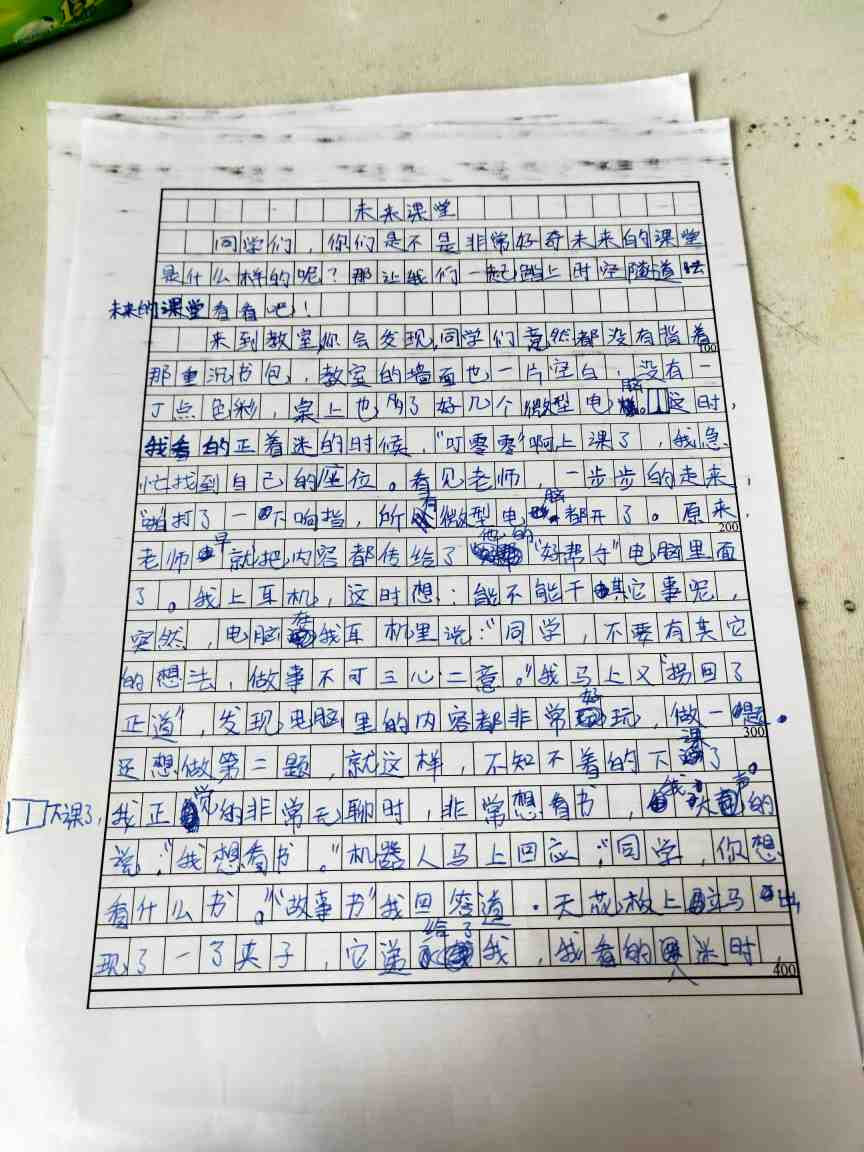 未来课堂
同学们，你们是不是非常好奇未来的课堂
是什么样的呢？那让我们一起踏上时空隧道去
未来的课堂看看吧！
来到教室，你会发现，同学们竟然都没有背着
那重沉书包，教室的墙面也一片空白，没有一
丁点色彩，桌上也多了好几个微型电脑。这时，
我看的正着迷的时候，“叮零零”啊上课了，我急
忙找到自己的座位。看见老师，一步步的走来，
啪打了一下响指，所有微型电脑都开了。原来，
老师早就把内容都传给了他的“好帮手”电脑里面
了。我上耳机，这时想：能不能干其它事呢，
突然，电脑在我耳机里说：“同学，不要有其它
的想法，做事不可三心二意。”我马上又“拐回了
正道”，发现电脑里的内容都非常好玩，做一题。
还想做第二题，就这样，不知不着的下课了。
下课了，我正觉的非常无聊时，非常想看书，我大声的
说：“我想看书。”机器人马上回应：“同学，你想
看什么书。”“故事书”我回答道．天花板上立马出
现了一了夹子，它递给了我，我看的入迷时，
100
200
300
400